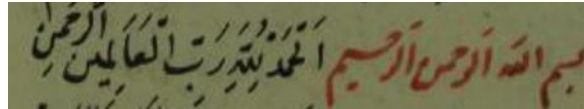 بسم الله الرحمن الرحيم اَلْحَمْدُ لِلّٰهِ رَبِّ الْعَالَمِينَ اَلرَّحْمٰنِ